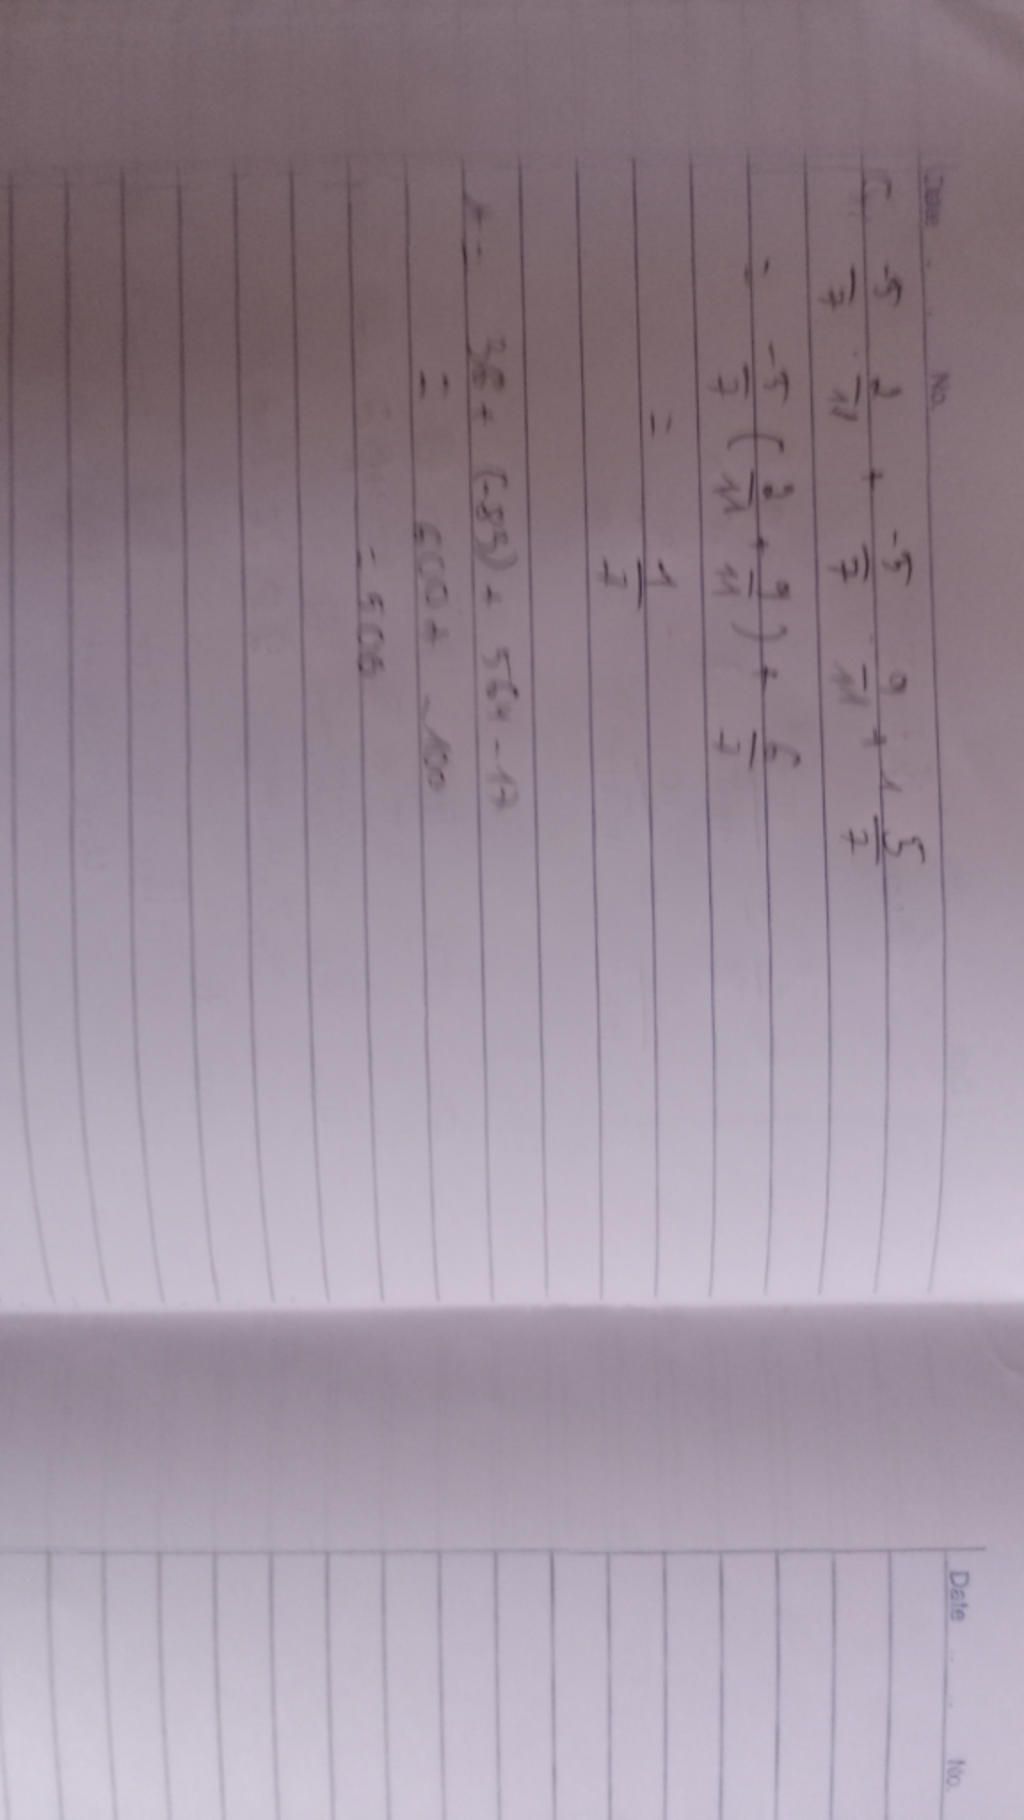 Date No.
-5/7 · 2/11 + -5/7 · 9/11 + 1 5/7
= -5/7 (2/11 + 9/11) + 6/7
= 1/7
36 + (-83) + 564 - 17
= 600 + -100
= 500
Date No.